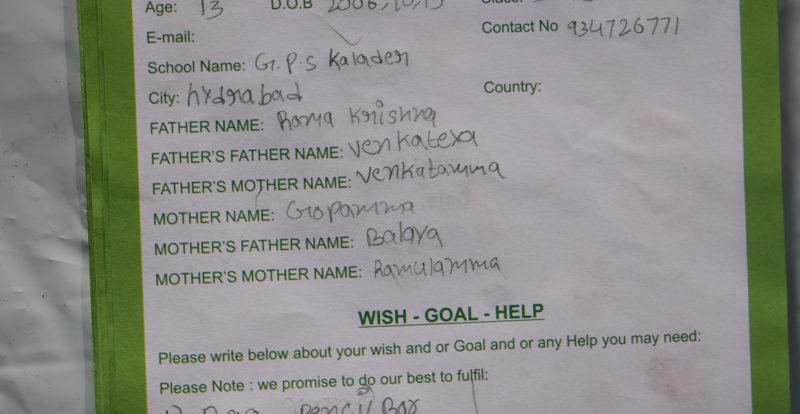 Age: 13 D.O.B 2006,10,15
E-mail: Contact No 934726771
School Name: G.P.S Kaladeri
City: hydrabad Country:
FATHER NAME: Rama Krishna
FATHER'S FATHER NAME: Venkatexa
FATHER'S MOTHER NAME: Venkatamma
MOTHER NAME: Gopamma
MOTHER'S FATHER NAME: Balaya
MOTHER'S MOTHER NAME: Ramulamma
WISH - GOAL - HELP
Please write below about your wish and or Goal and or any Help you may need:
Please Note : we promise to do our best to fulfil:
Pencil Box